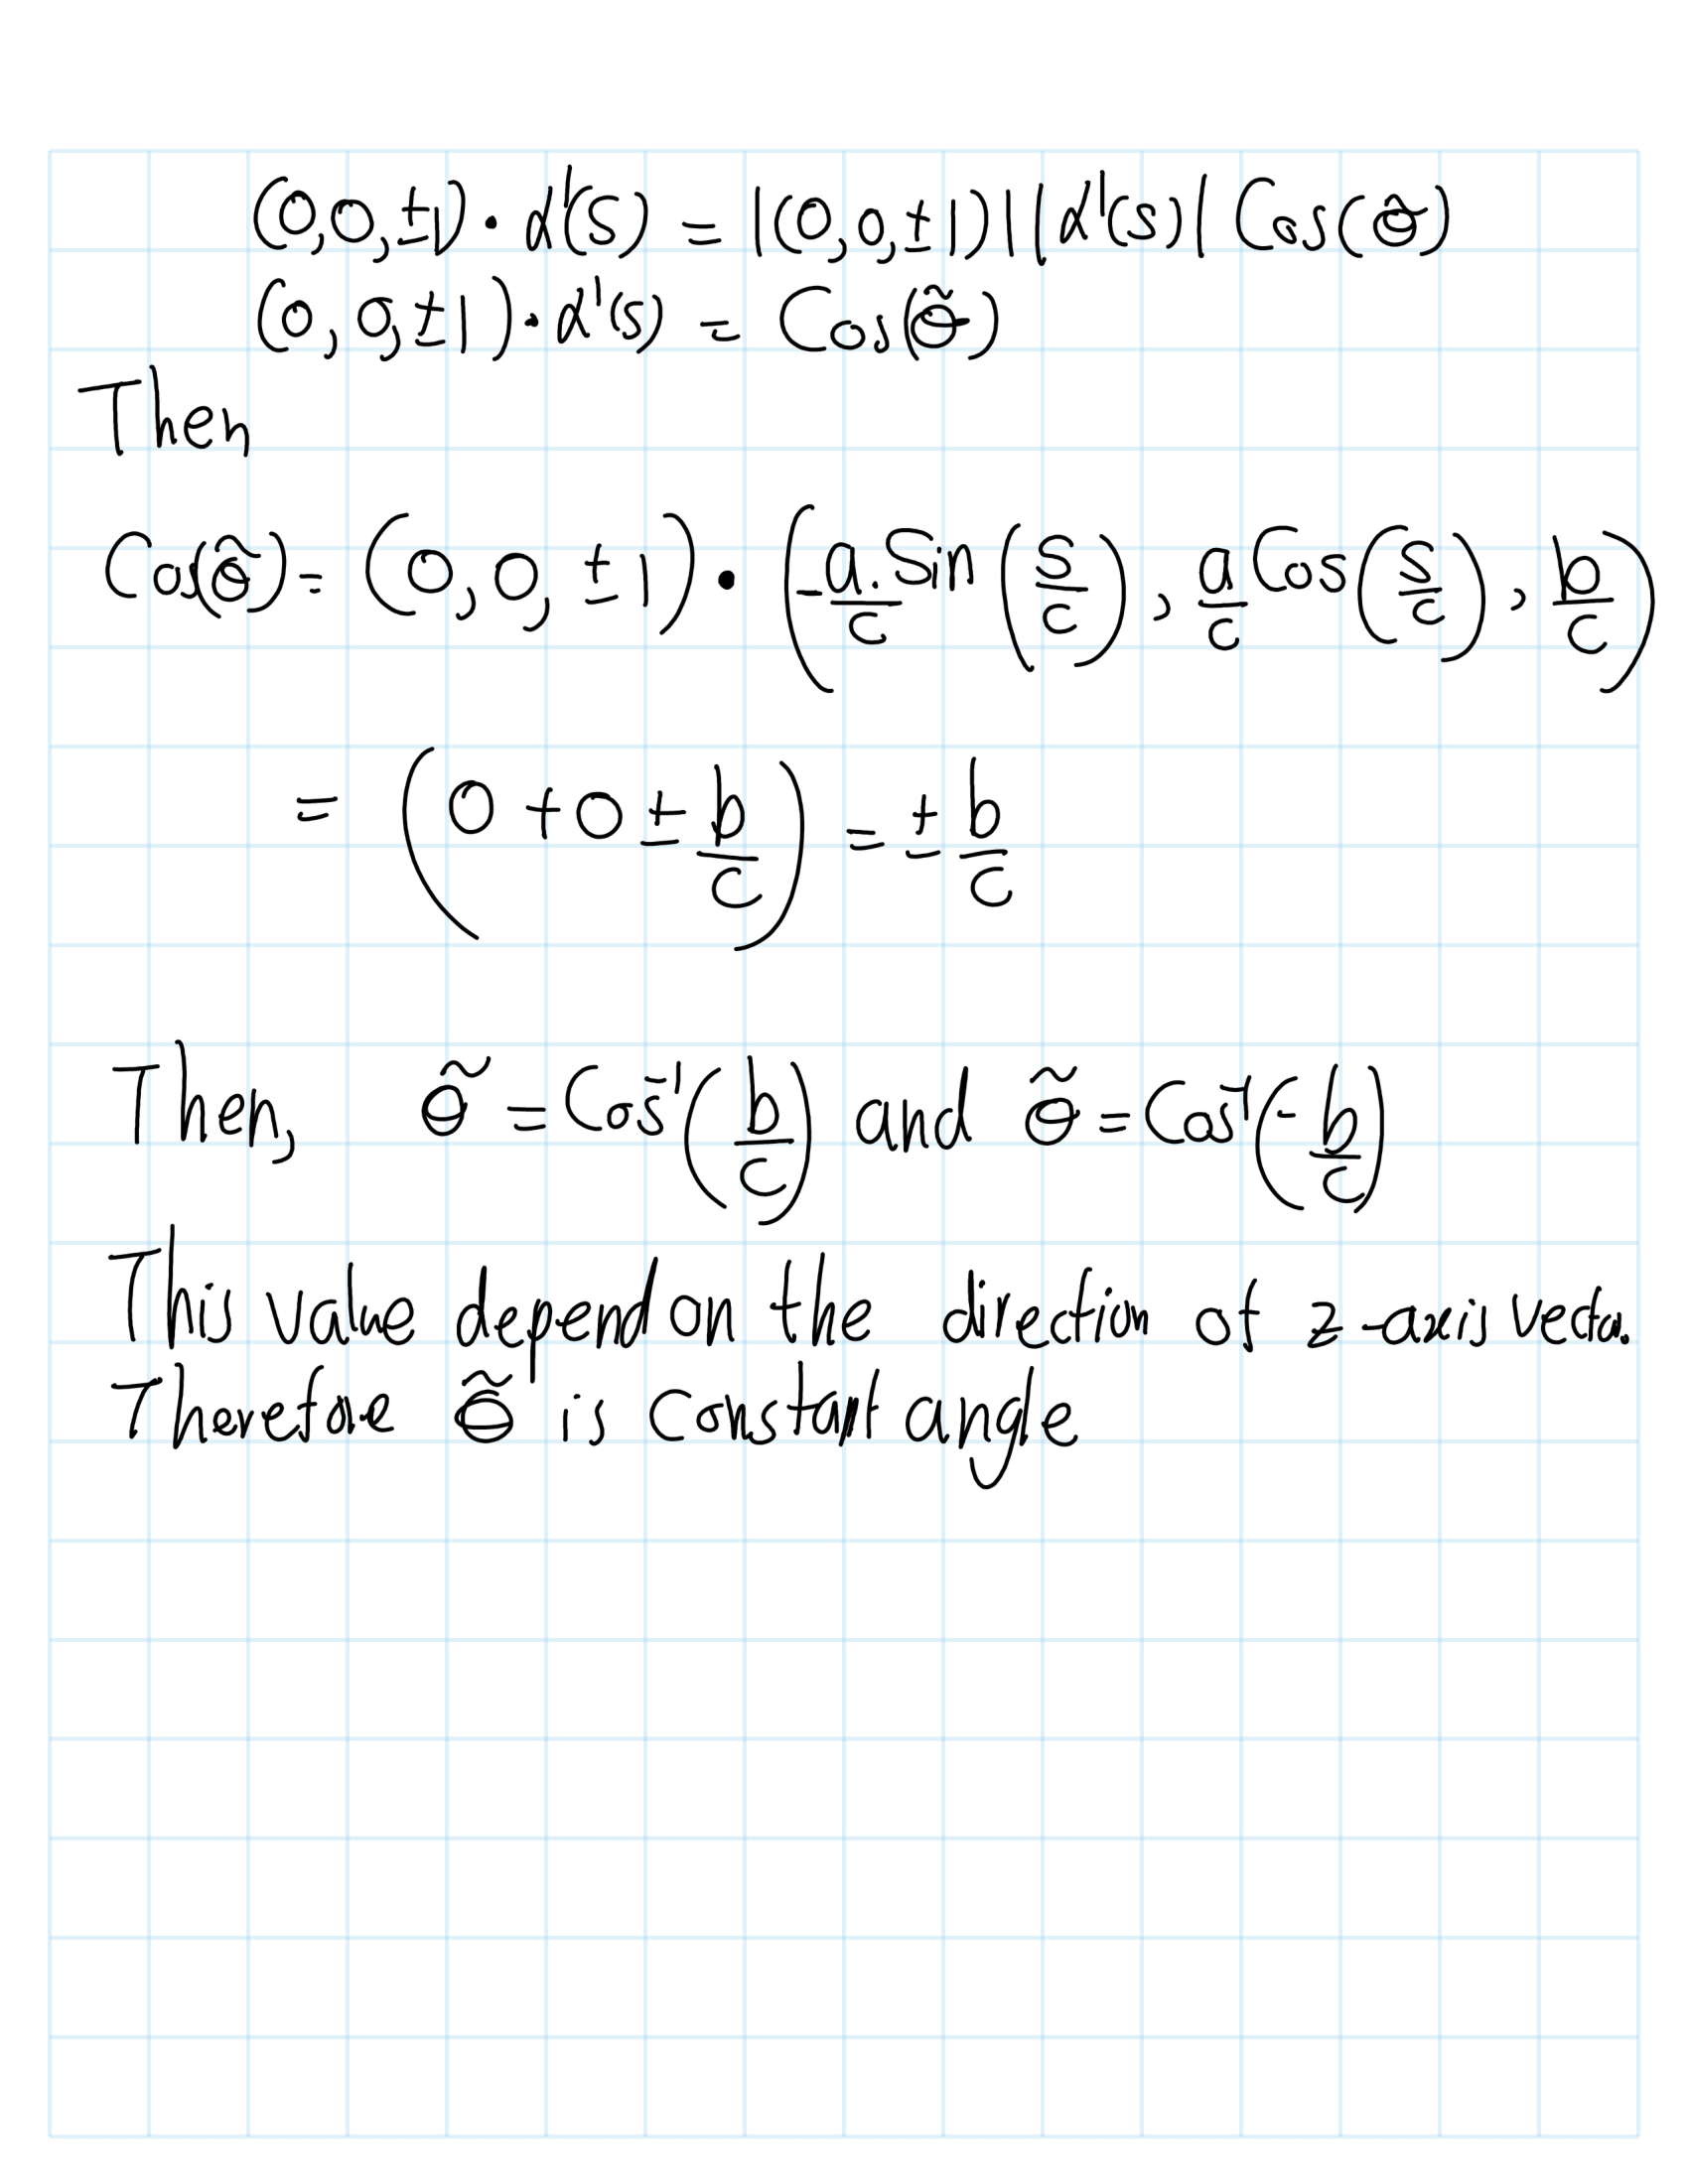 (0,0,±1) · α'(s) = |(0,0,±1)| |α'(s)| Cos(θ̃)
(0,0,±1) · α'(s) = Cos(θ̃)
Then
Cos(θ̃) = (0,0,±1) · (-a/c · Sin(s/c), a/c Cos(s/c), b/c)
= (0+0±b/c) = ±b/c
Then, θ̃ = Cos⁻¹(b/c) and θ̃ = Cos⁻¹(-b/c)
This value depend on the direction of z-axis vector.
Therefore θ̃ is constant angle